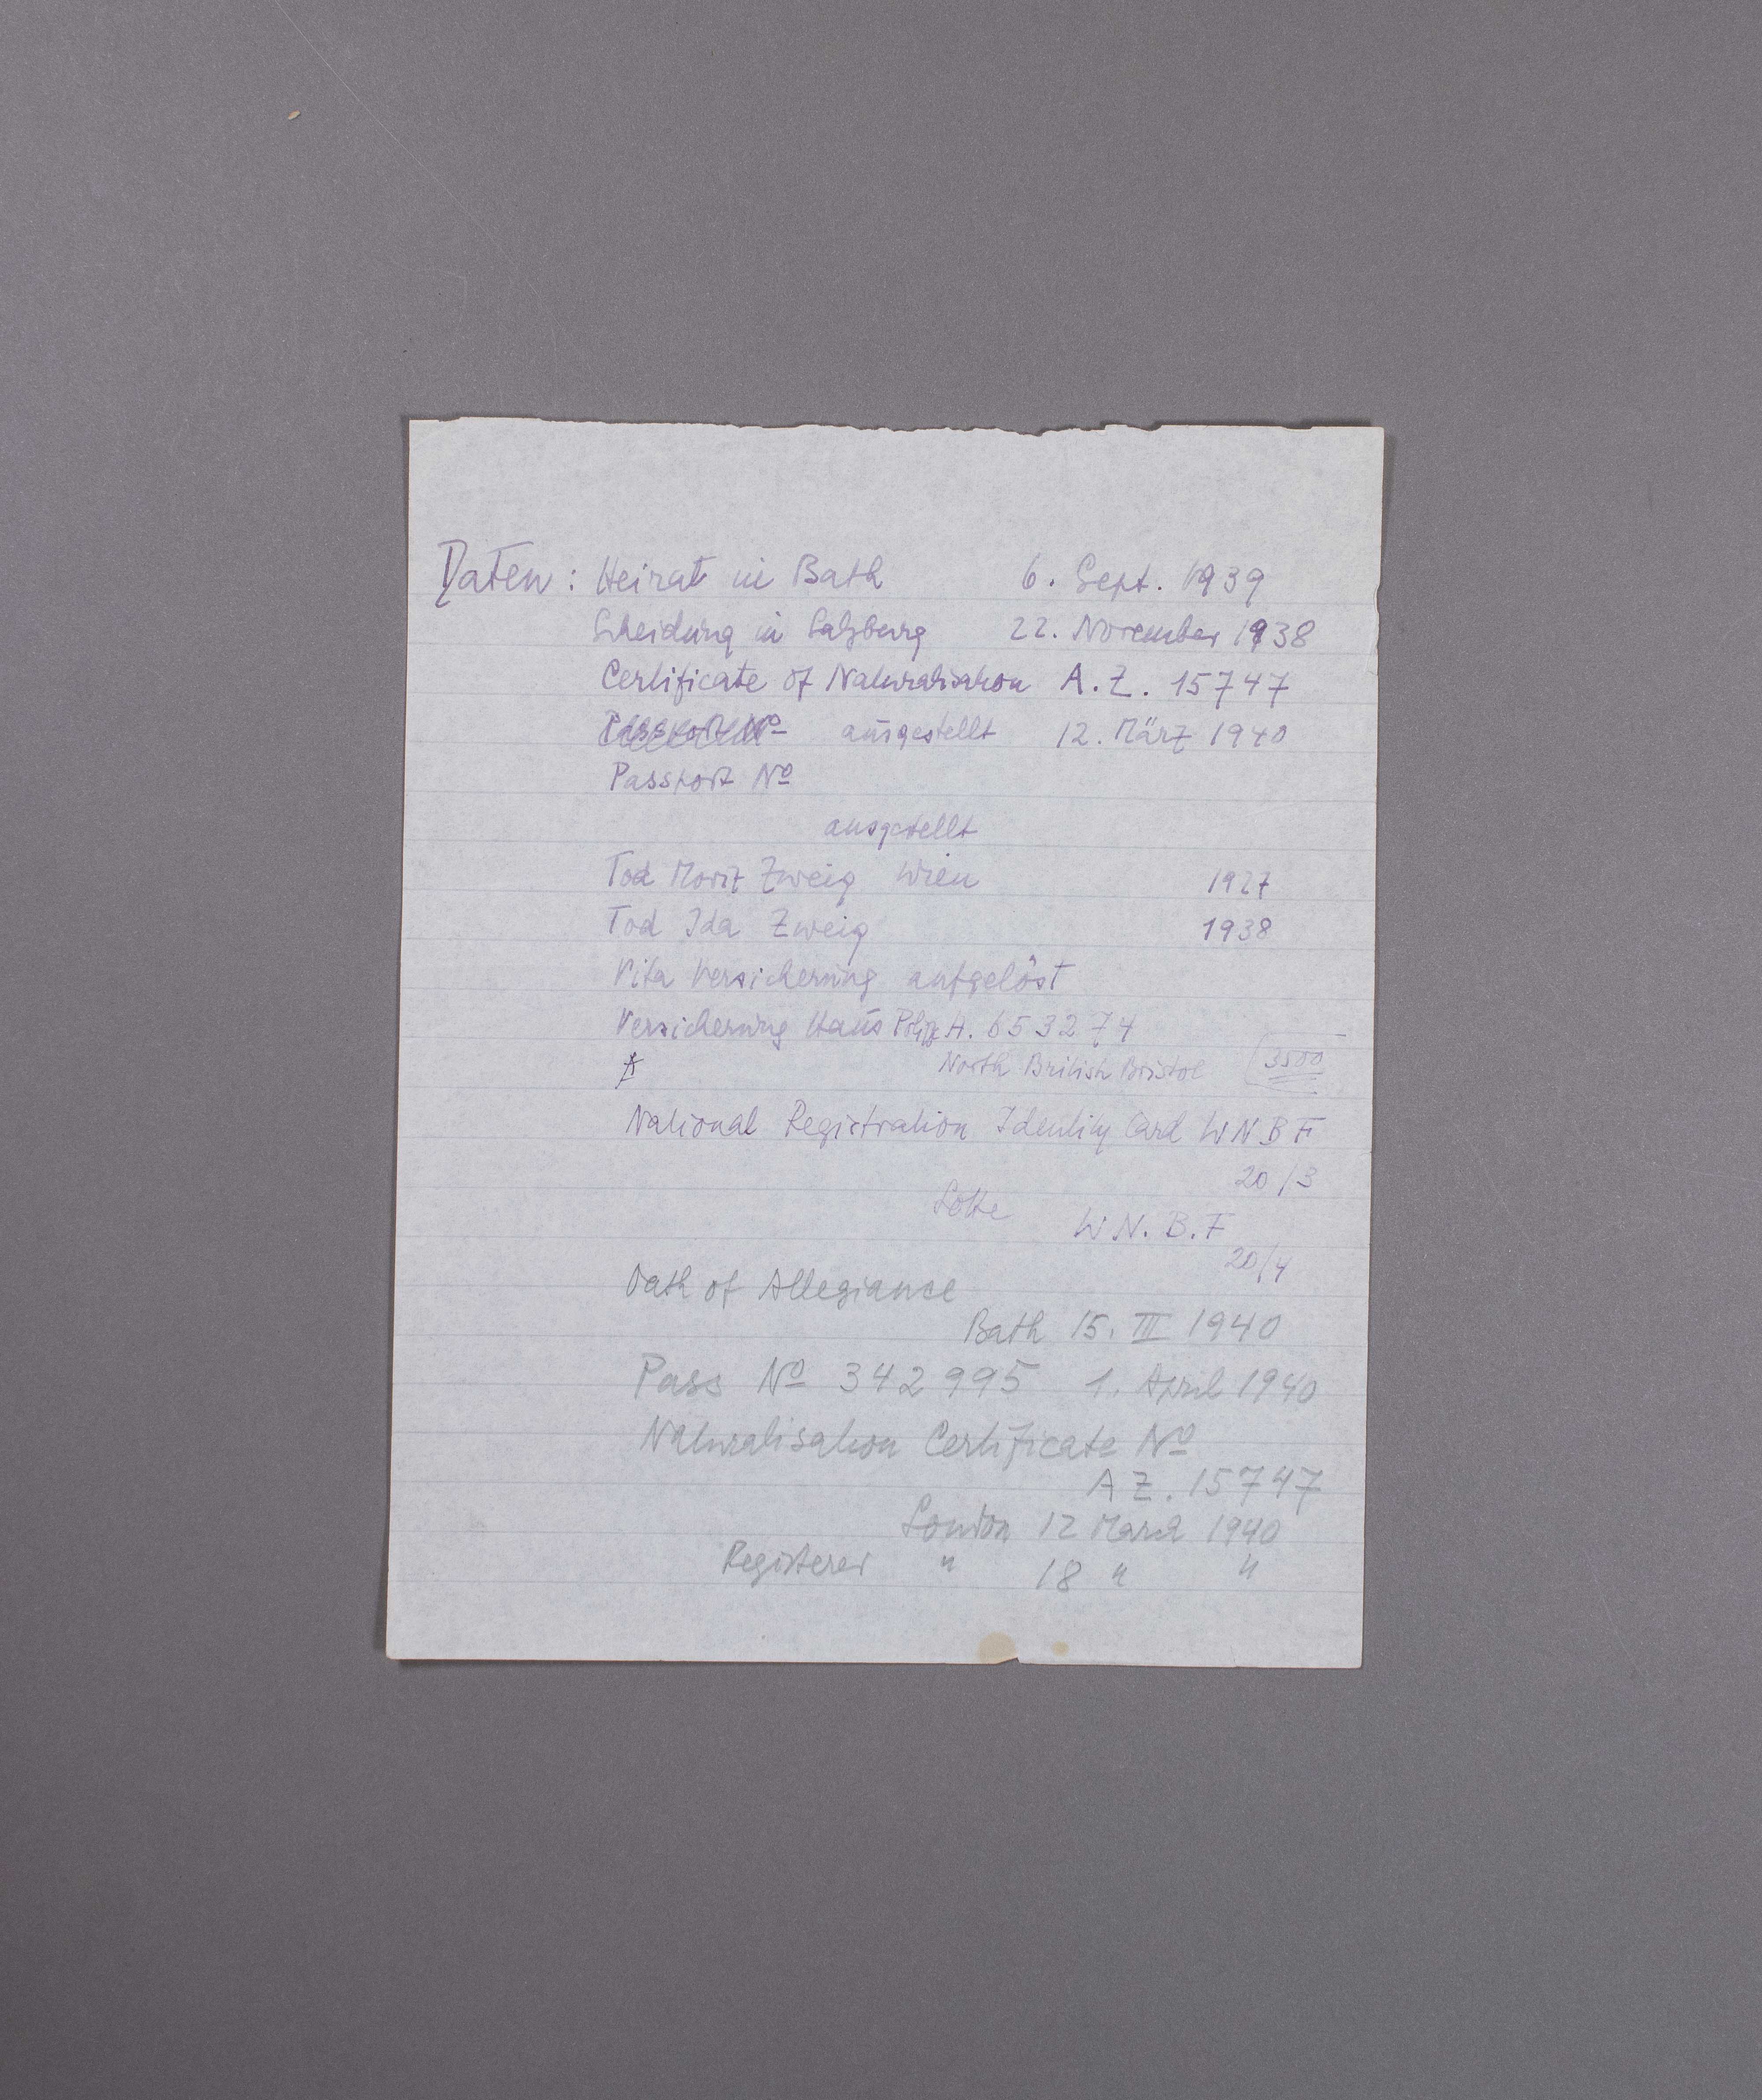 Daten: Heirat in Bath 6. Sept. 1939
Scheidung in Salzburg 22. November 1938
Certificate of Naturalisation A.Z. 15747
Passport Nº ausgestellt 12. März 1940
Passport Nº
ausgestellt
Tod Moriz Zweig Wien 1927
Tod Ida Zweig 1938
Vita Versicherung aufgelöst
Versicherung Haus A. 653274
North British Bristol 3500
National Registration Identity Card WNBF
20/3
Lotte W.N.B.F
20/4
Oath of Allegiance
Bath 15. III 1940
Pass Nº 342995 1. April 1940
Naturalisation Certificate Nº
AZ. 15747
London 12 March 1940
Registered " 18 " "